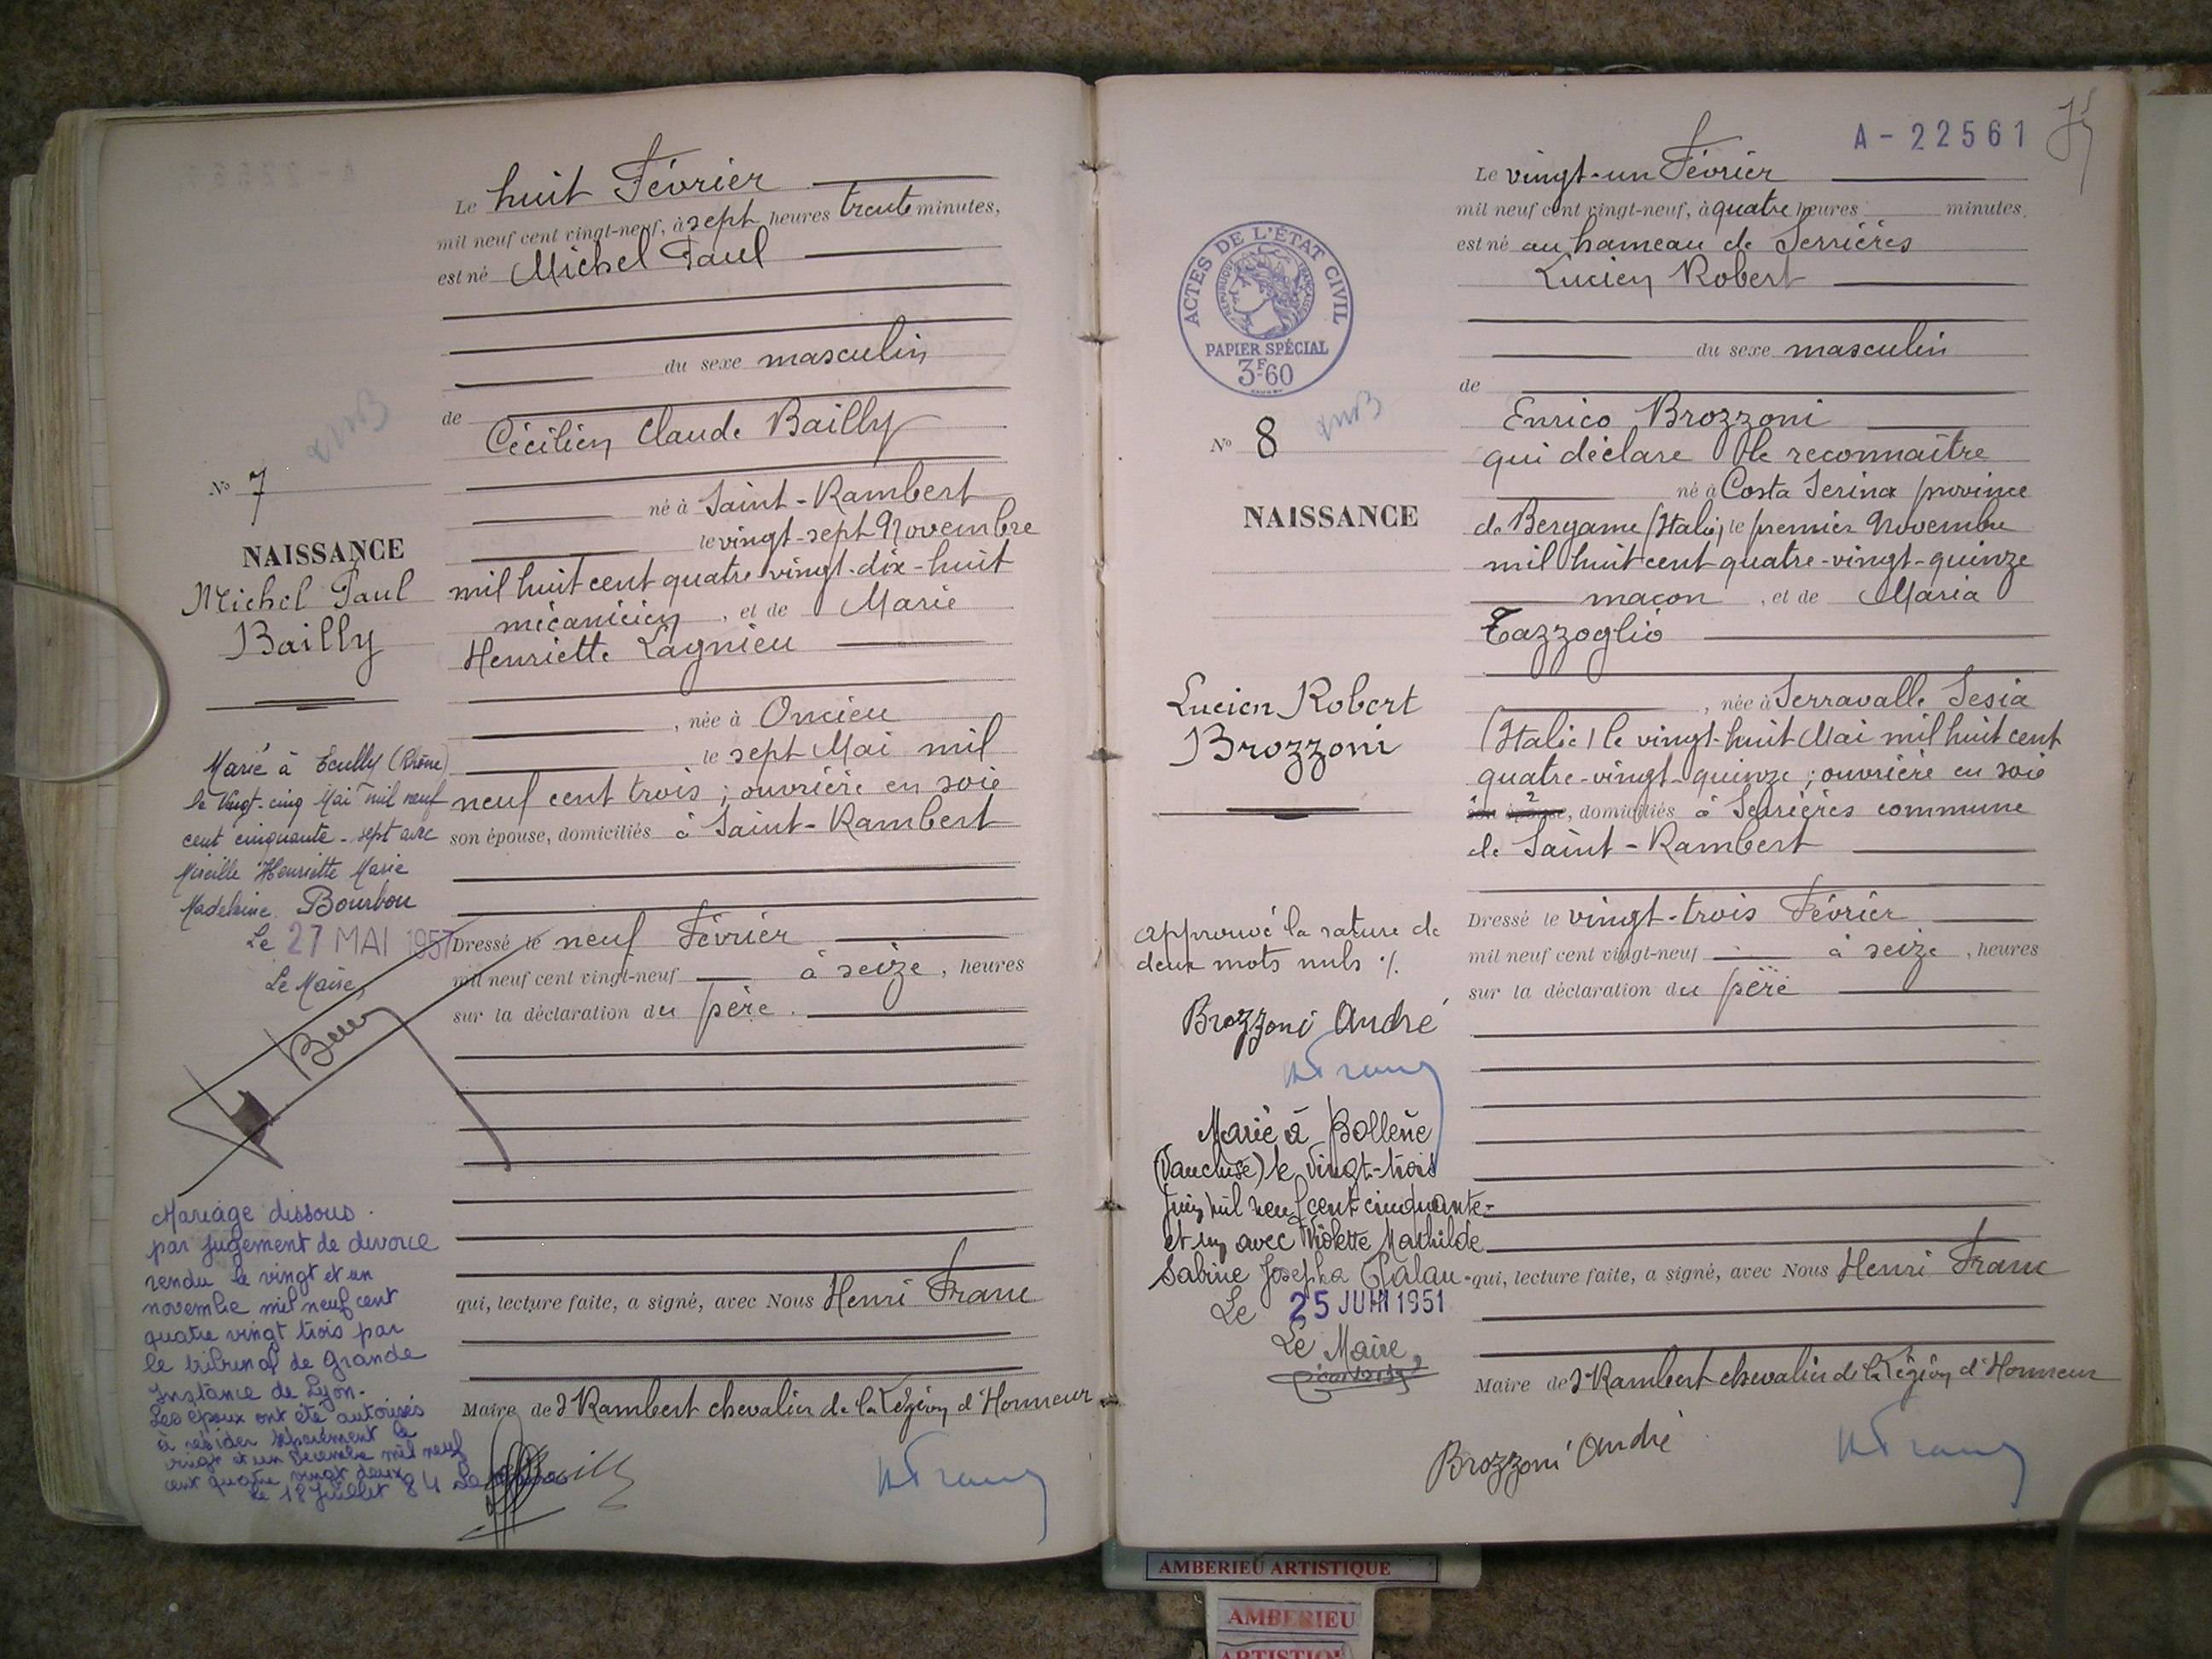 Le huit Février
mil neuf cent vingt-neuf, à sept heures trente minutes,
est né Michel Paul
du sexe masculin
de
Cécilien Claude Bailly
né à Saint-Rambert
le vingt-sept Novembre
mil huit cent quatre-vingt-dix-huit
mécanicien, et de Marie
Henriette Lagnieu
, née à Oncieu
le sept Mai mil
neuf cent trois ; ouvrière en soie
son épouse, domiciliés à Saint-Rambert
Dressé le neuf Février
mil neuf cent vingt-neuf à seize, heures
sur la déclaration du père.
qui, lecture faite, a signé, avec Nous Henri Franc
Maire de St Rambert chevalier de la Légion d'Honneur
Bailly
HFranc
No 7
NAISSANCE
Michel Paul
Bailly
Marié à Ecully (Rhône)
le Vingt-cinq Mai mil neuf
cent cinquante-sept avec
Mireille Henriette Marie
Madeleine Bourbon
Le 27 MAI 1957
Le Maire,
Mariage dissous
par jugement de divorce
rendu le vingt et un
novembre mil neuf cent
quatre vingt trois par
le tribunal de Grande
Instance de Lyon.
Les époux ont été autorisés
à résider séparément le
vingt et un Décembre mil neuf
cent quatre vingt deux
le 18 Juillet 84
A-22561
75
Le vingt-un Février
mil neuf cent vingt-neuf, à quatre heures minutes,
est né au hameau de Serrières
Lucien Robert
du sexe masculin
de
Enrico Brozzoni
qui déclare le reconnaître
né à Costa Serina province
de Bergame (Italie) le premier Novembre
mil huit cent quatre-vingt-quinze
maçon, et de Maria
Tazzoglio
, née à Serravalle Sesia
(Italie) le vingt-huit Mai mil huit cent
quatre-vingt-quinze ; ouvrière en soie
son épouse, domiciliés à Serrières commune
de Saint-Rambert
Dressé le vingt-trois Février
mil neuf cent vingt-neuf à seize, heures
sur la déclaration du père
qui, lecture faite, a signé, avec Nous Henri Franc
Maire de St Rambert chevalier de la Légion d'Honneur
Brozzoni André
HFranc
ACTES DE L'ÉTAT CIVIL
RÉPUBLIQUE FRANÇAISE
PAPIER SPÉCIAL
3F60
No 8
NAISSANCE
Lucien Robert
Brozzoni
approuvé la rature de
deux mots nuls
Brozzoni André
HFranc
Marié à Bollène
(Vaucluse) le Vingt-trois
Juin mil neuf cent cinquante-
et un avec Violette Mathilde
Sabine Josepha
Le 25 JUIN 1951
Le Maire,
AMBERIEU ARTISTIQUE
AMBERIEU
ARTISTIQUE